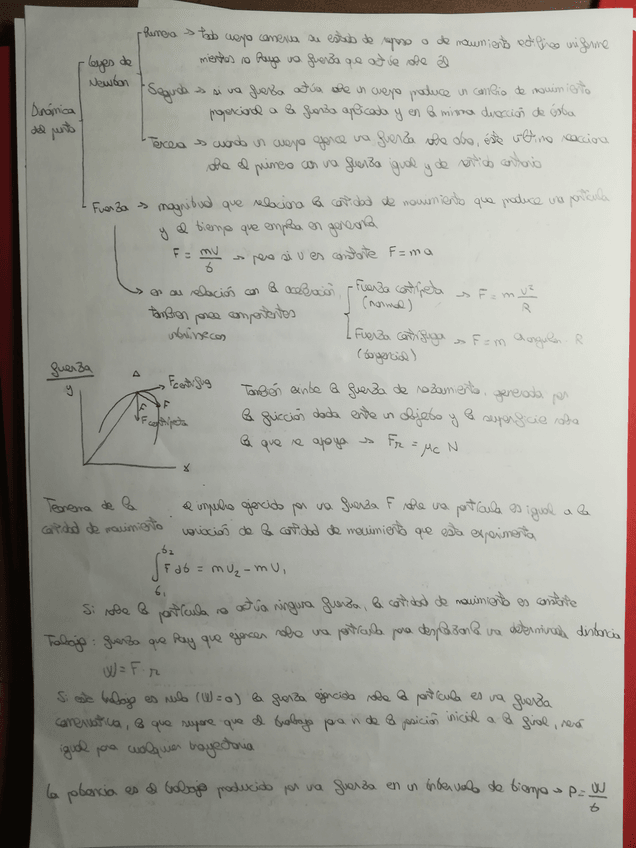 Primera → todo cuerpo conserva su estado de reposo o de movimiento rectilíneo uniforme
mientras no haya una fuerza que actúe sobre él
Leyes de
Newton
Segunda → si una fuerza actúa sobre un cuerpo produce un cambio de movimiento
proporcional a la fuerza aplicada y en la misma dirección de ésta
Dinámica
del punto
Tercera → cuando un cuerpo ejerce una fuerza sobre otro, éste último reacciona
sobre el primero con una fuerza igual y de sentido contrario
Fuerza → magnitud que relaciona la cantidad de movimiento que produce una partícula
y el tiempo que emplea en generarla
F = mv/t → pero si v es constante F = m a
en su relación con la aceleración
también posee componentes
intrínsecas
Fuerza centrípeta → F = m v²/R
(normal)
Fuerza centrífuga → F = m a angular R
(tangencial)
fuerza
y
F centrífug
F
F centrípeta
x
También existe la fuerza de rozamiento, generada por
la fricción dada entre un objeto y la superficie sobre
la que se apoya → Fr = μc N
Teorema de la
cantidad de movimiento
el impulso ejercido por una fuerza F sobre una partícula es igual a la
variación de la cantidad de movimiento que esta experimenta
∫ t₁ t₂ F dt = m v₂ - m v₁
Si sobre la partícula no actúa ninguna fuerza, la cantidad de movimiento es constante
Trabajo: fuerza que hay que ejercer sobre una partícula para desplazarla una determinada distancia
W = F · r
Si este trabajo es nulo (W = 0) la fuerza ejercida sobre la partícula es una fuerza
conservativa, lo que supone que el trabajo para ir de la posición inicial a la final, será
igual para cualquier trayectoria
La potencia es el trabajo producido por una fuerza en un intervalo de tiempo → P = W/t